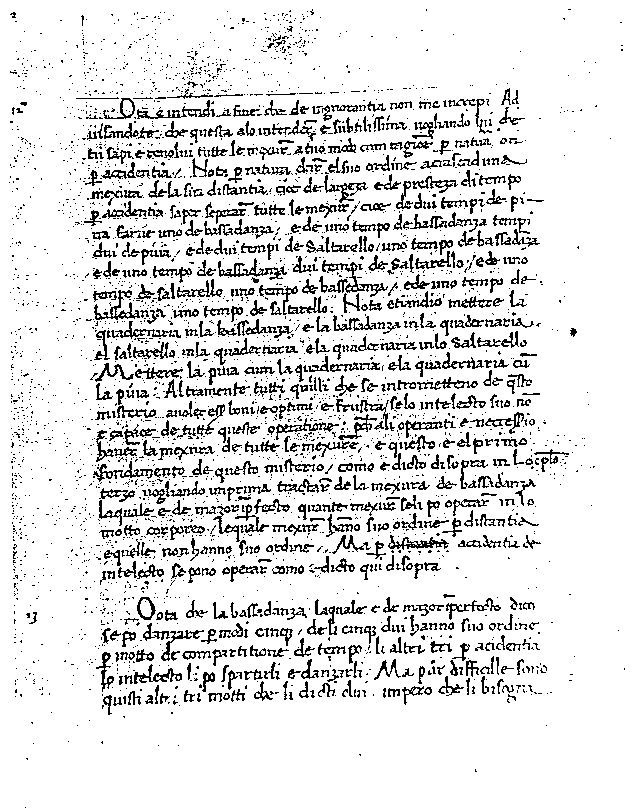 12
Nota e intendi a fine che de ignorantia non me increpi. Ad
uisandote che questa alo intendere e subtilissima uogliando lui che
tu sapi e cenolni tutte le mexure a tuo modo cum ragione p natura on
p accidentia / Nota p natura dare el suo ordine aciaschaduna
mexura de la sua distantia, cioe de largeza e de presteza di tempo
p accidentia saper seperare tutte le mexure / cioe de dui tempi de pi-
ua farne uno de bassadanza / e de uno tempo de bassadanza tempi
dui de piua / e de dui tempi de Saltarello / uno tempo de bassadaza
e de uno tempo de bassadanza dui tempi de Saltarello / e de uno
tempo de saltarello uno tempo de bassedanza / e de uno tempo de
bassedanza uno tempo de saltarello. Nota etiandio mettere la
quadernaria in la bassedanza / e la bassadanza in la quadernaria
el saltarello in la quadernaria e la quadernaria in lo Saltarello
Mettere la piua cum la quadernaria, e la quadernaria cū
la piua. Altramente tutti quilli che se intromietteno de q̄sto
misterio a uoler ess boni / e optimi / e frustra / se lo intelecto suo nō
e capace de tutte queste operatione. pche ali operanti e necessio
hauer la mexura de tutte le mexure, e questo e el primo
fondamento de questo misterio / como e dicto di sopra in Lo cplo
terzo uogliando imprima tractar de la mexura de bassadanza
laquale e de mazor pfecto quante mexure se li po operar in lo
motto corporeo / le quale mexure hano suo ordine p distantia
e quelle non hanno suo ordine. Ma p distantia accidentia de
intelecto se pono operar como e dicto qui di sopra.
13
Nota che la bassadanza laquale e de mazor ĩperfecto dico
se po danzare p modi cinq / de li cinq dui hanno suo ordine
p motto de compartitione de tempo / li altri tri p accidentia
lo intelecto li po spartirli e danzarli. Ma pur difficille sono
quisti altri tri motti che li dicti dui. impero che li bisogna